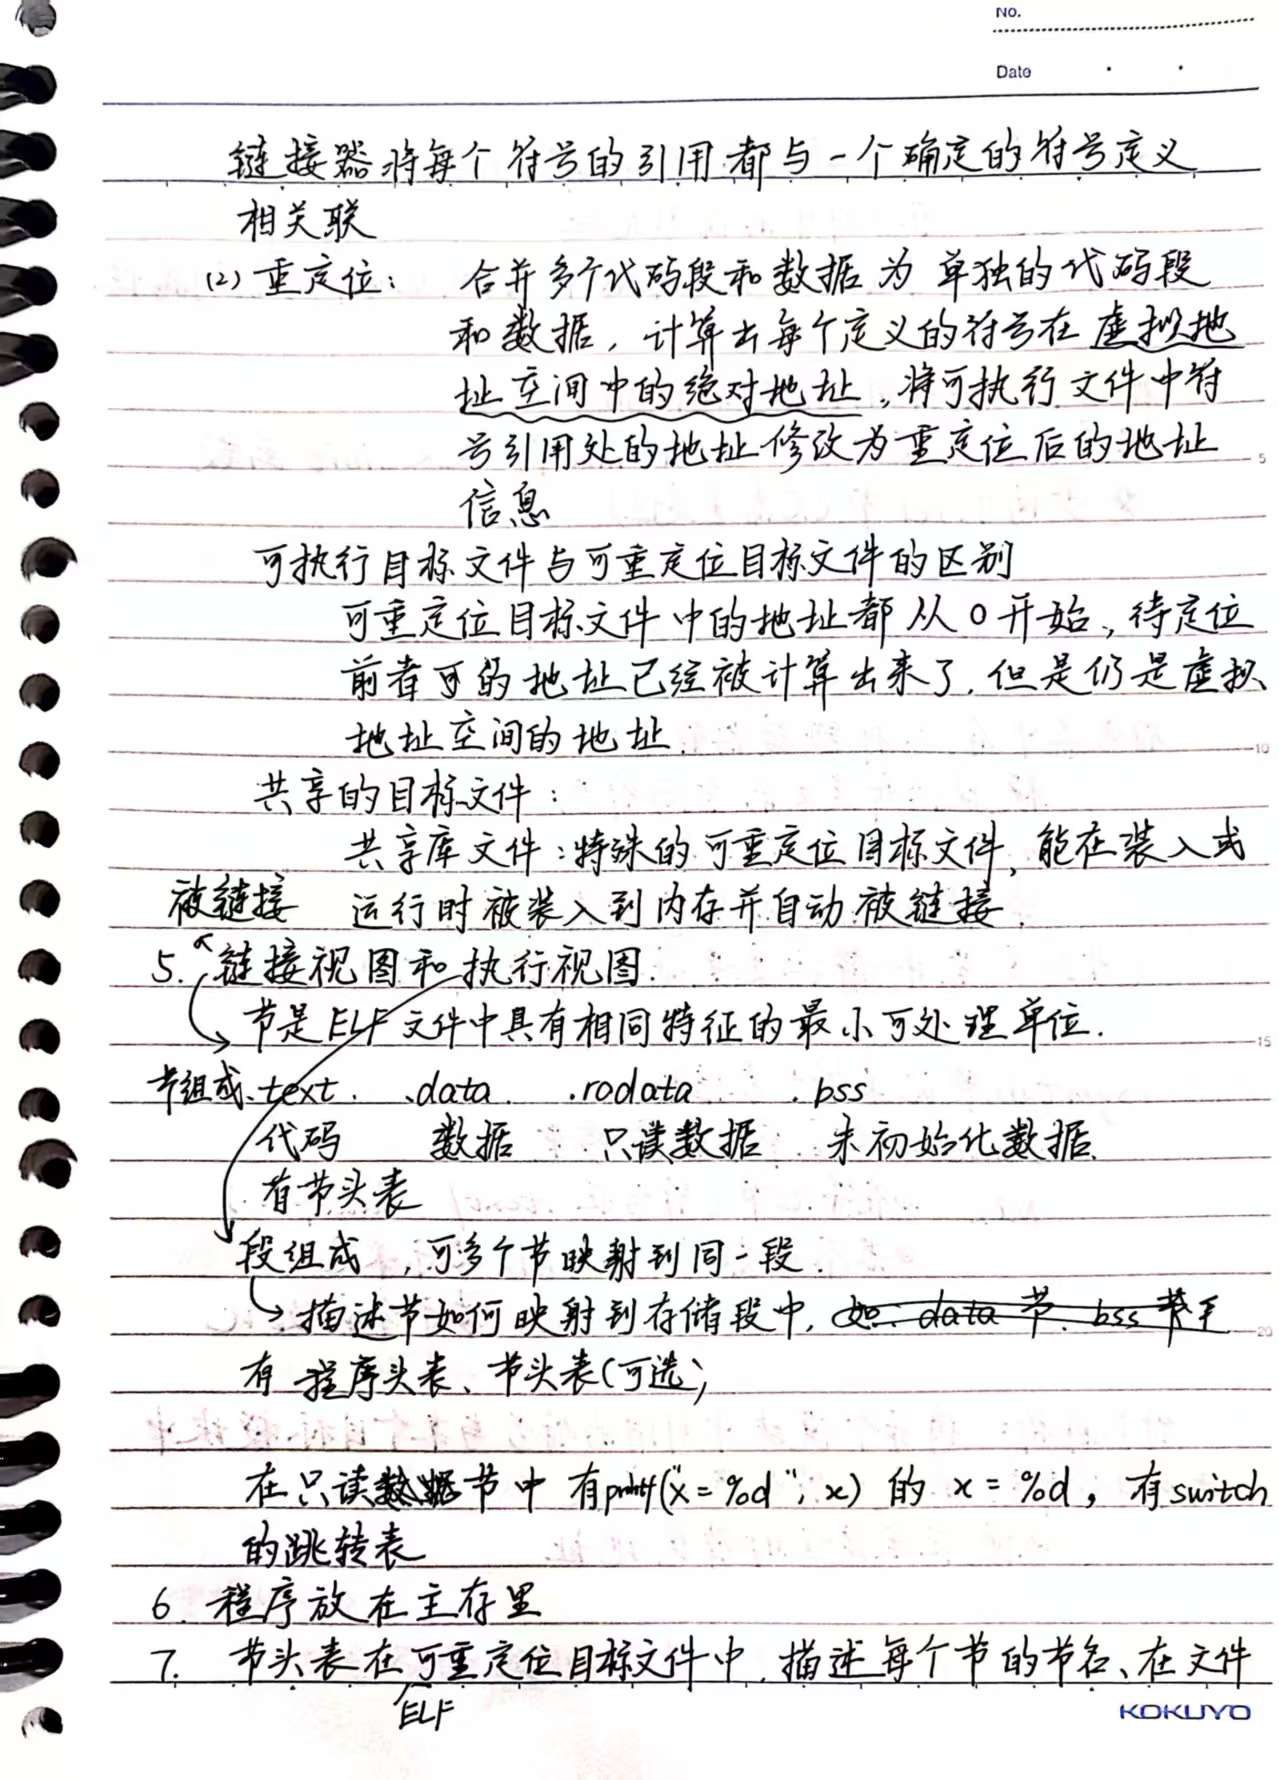 No.
Date
链接器将每个符号的引用都与一个确定的符号定义
相关联
(2) 重定位: 合并多个代码段和数据为单独的代码段
和数据, 计算出每个定义的符号在虚拟地
址空间中的绝对地址, 将可执行文件中符
号引用处的地址修改为重定位后的地址
信息
可执行目标文件与可重定位目标文件的区别
可重定位目标文件中的地址都从0开始, 待定位
前者的地址已经被计算出来了, 但是仍是虚拟
地址空间的地址.
共享的目标文件:
共享库文件: 特殊的可重定位目标文件, 能在装入或
运行时被装入到内存并自动被链接.
被链接
5. 链接视图和执行视图.
节是ELF文件中具有相同特征的最小可处理单位.
节组成 .text. .data. .rodata .bss
代码 数据 只读数据 未初始化数据.
有节头表
段组成, 可多个节映射到同一段.
描述节如何映射到存储段中, 如: data 节. bss
有 程序头表、节头表(可选)
在只读数据节中有printf("x=%d", x) 的 x=%d, 有switch
的跳转表
6. 程序放在主存里
7. 节头表在可重定位目标文件中, 描述每个节的节名、在文件
ELF
5
10
15
20
KOKUYO